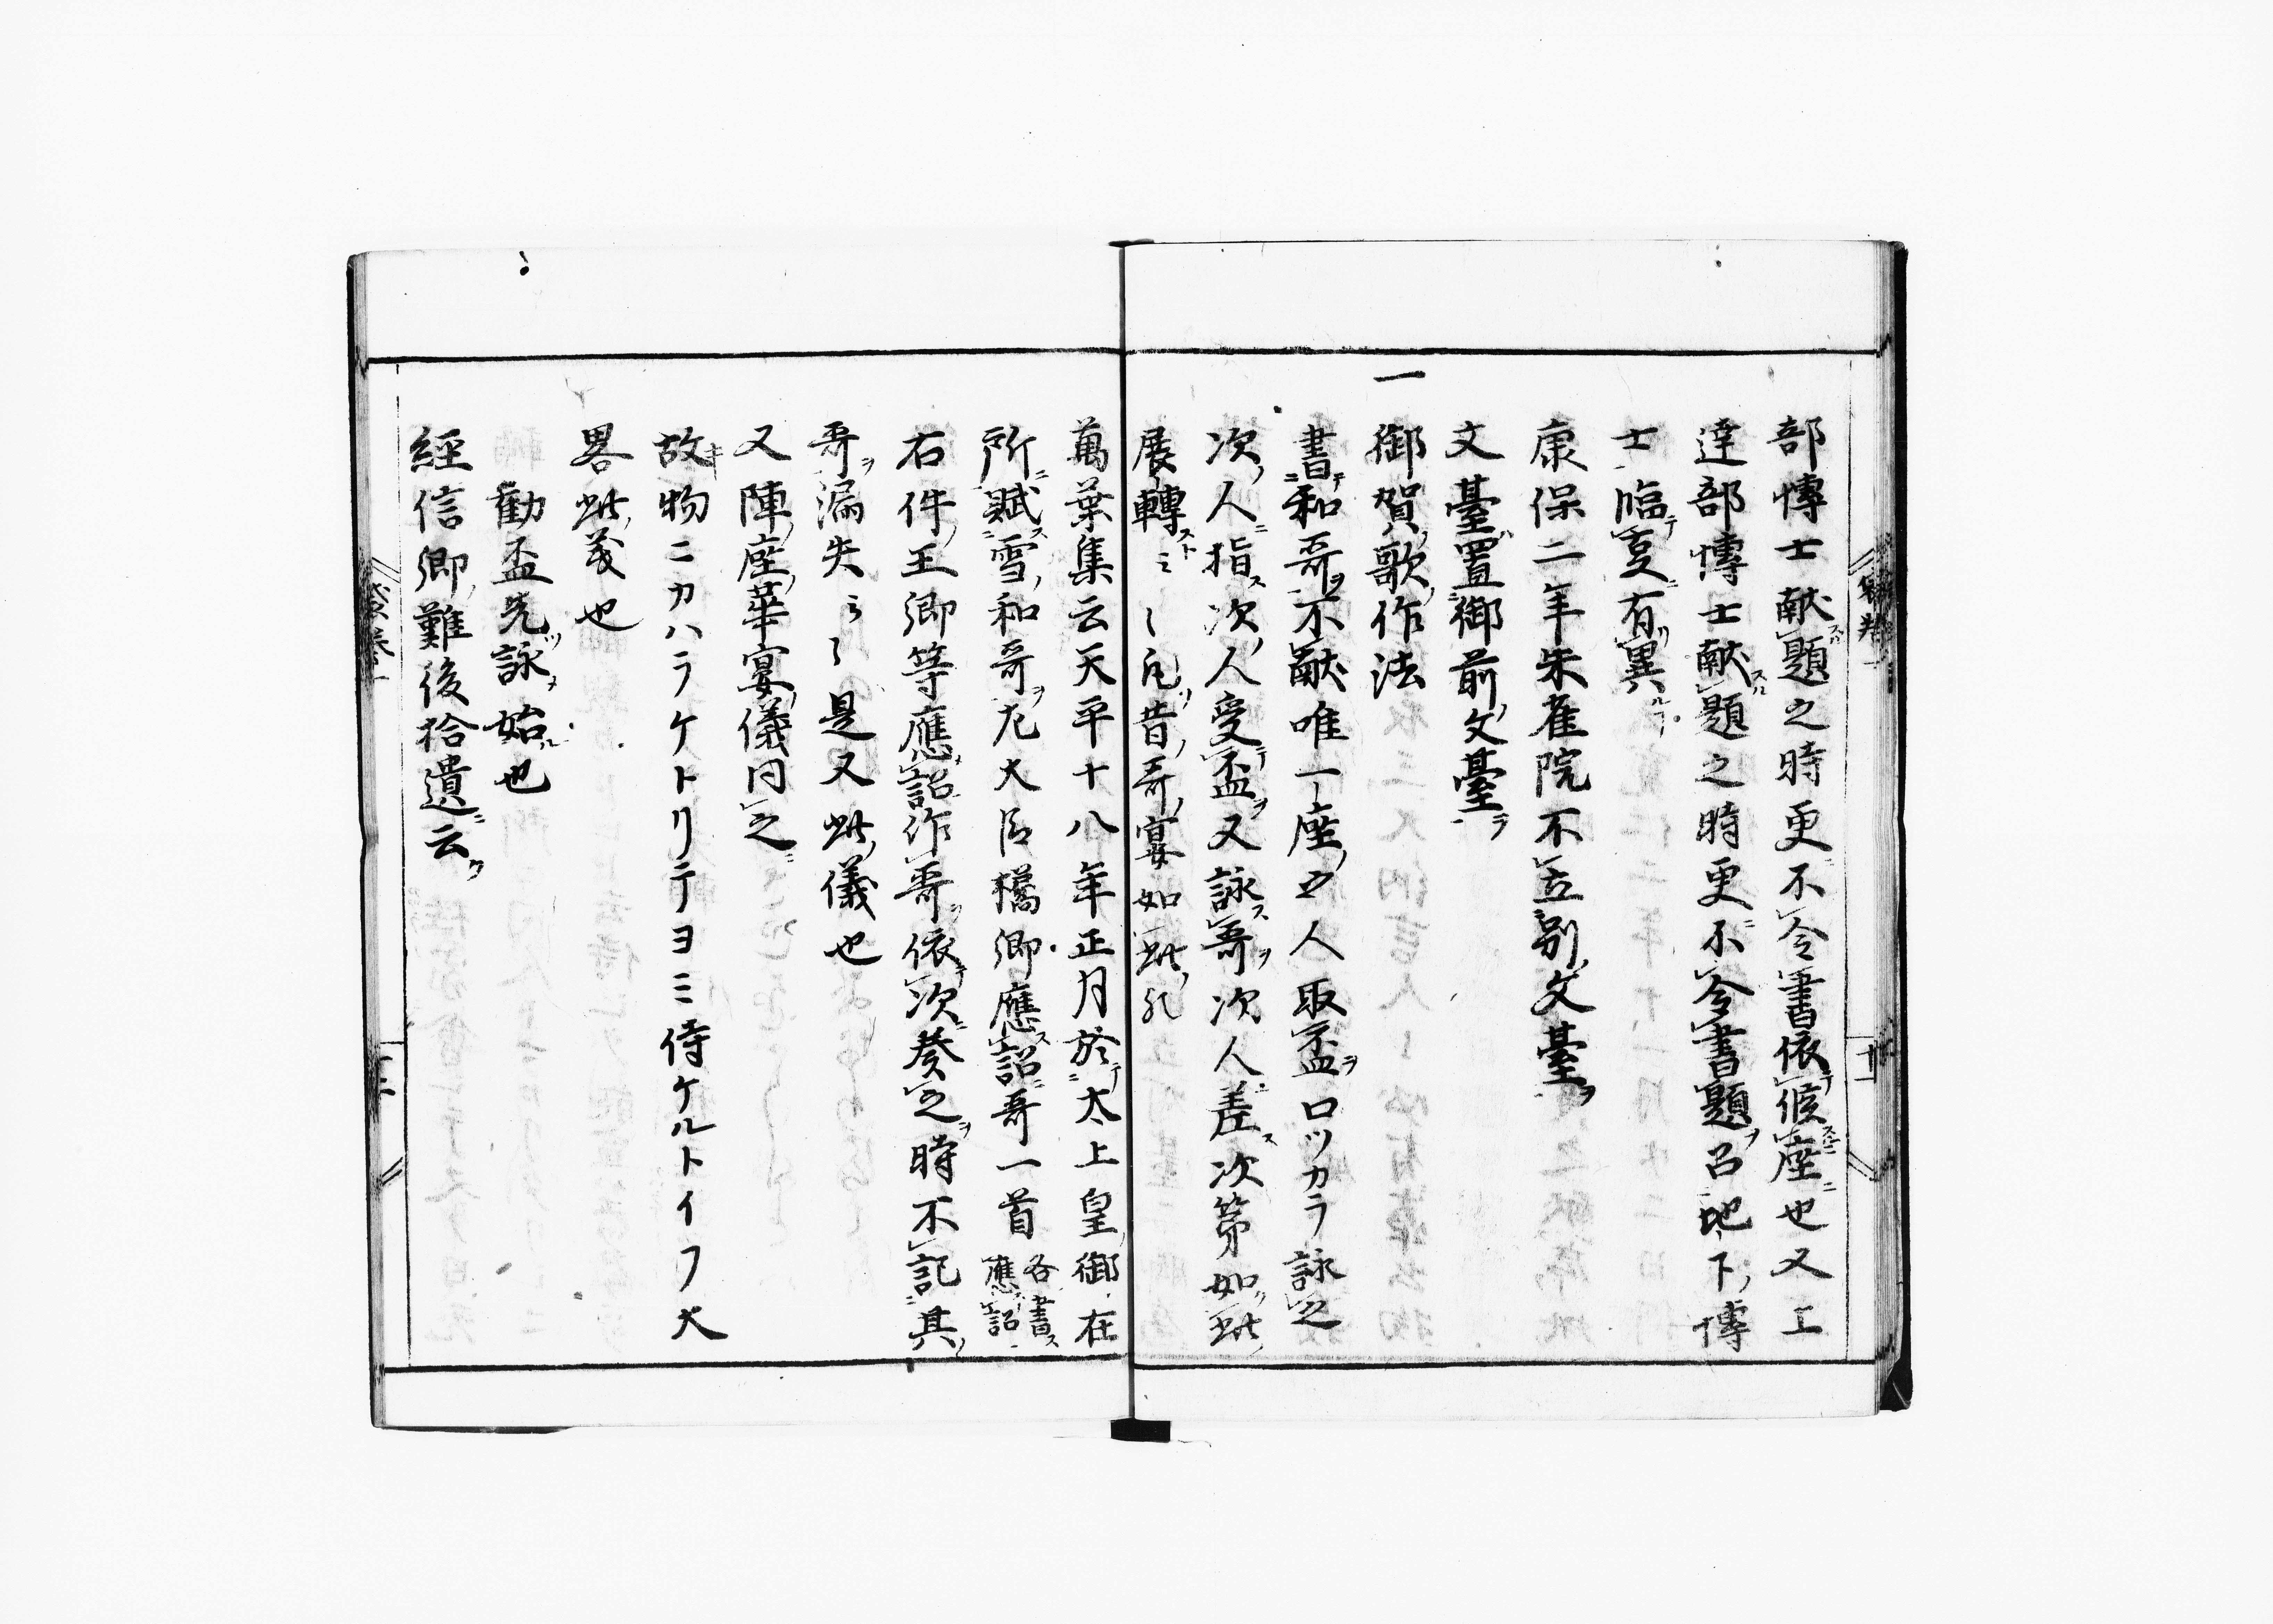 部博士献題之時更不令書依候座也又上
達部博士献題之時更不令書題召地下博
士臨夏有異
康保二年朱雀院不立別文臺
文臺置御前文臺
一
御賀歌作法
書和哥不献唯一座之人取盃口ツカラ詠之
次人指次人受盃又詠哥次人差次第如此
展轉ミ〻凡昔哥宴如此
萬葉集云天平十八年正月於太上皇御在
所賦雪和哥左大臣橘卿應詔哥一首
各書
應詔
右件王卿等應詔作哥依次奏之時不記其
哥漏失云々是又此儀也
又陣座華宴儀同之
故物ニカハラケトリテヨミ侍ケルトイフ大
畧此義也
勸盃先詠始也
經信卿難後拾遺云